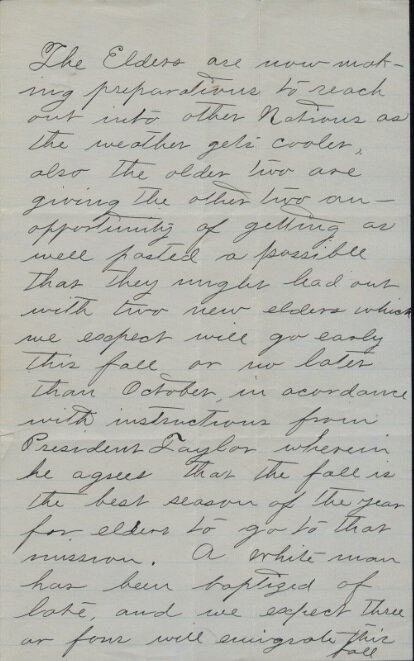 The Elders are now mak-
ing preparations to reach
out into other Nations as
the weather gets cooler,
also the older two are
giving the other two an-
opportunity of getting as
well posted a possible
that they might lead out
with two new elders which
we expect will go early
this fall or no later
than October, in acordance
with instructions from
President Taylor wherein
he agrees that the fall is
the best season of the year
for elders to go to that
mission. A white man
has been baptized of
late, and we expect three
or four will emigrate this
fall